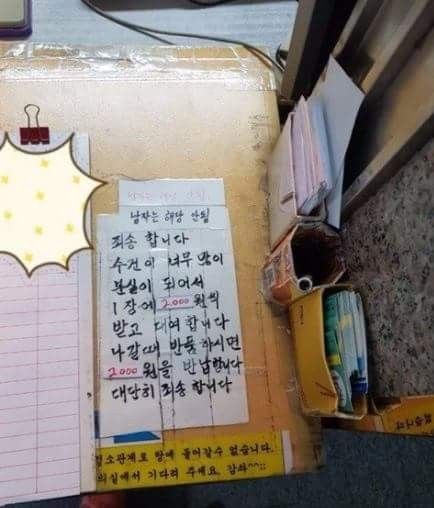 남자는 해당 안됨
죄송 합니다
수건이 너무 많이
분실이 되어서
1장에 2.000 원씩
받고 대여 합니다
나갈때 반품 하시면
2000 원을 반납합니다
대단히 죄송 합니다
청소관계로 탕에 들어갈수 없습니다.
의실에서 기다려 주세요. 감사^^;;